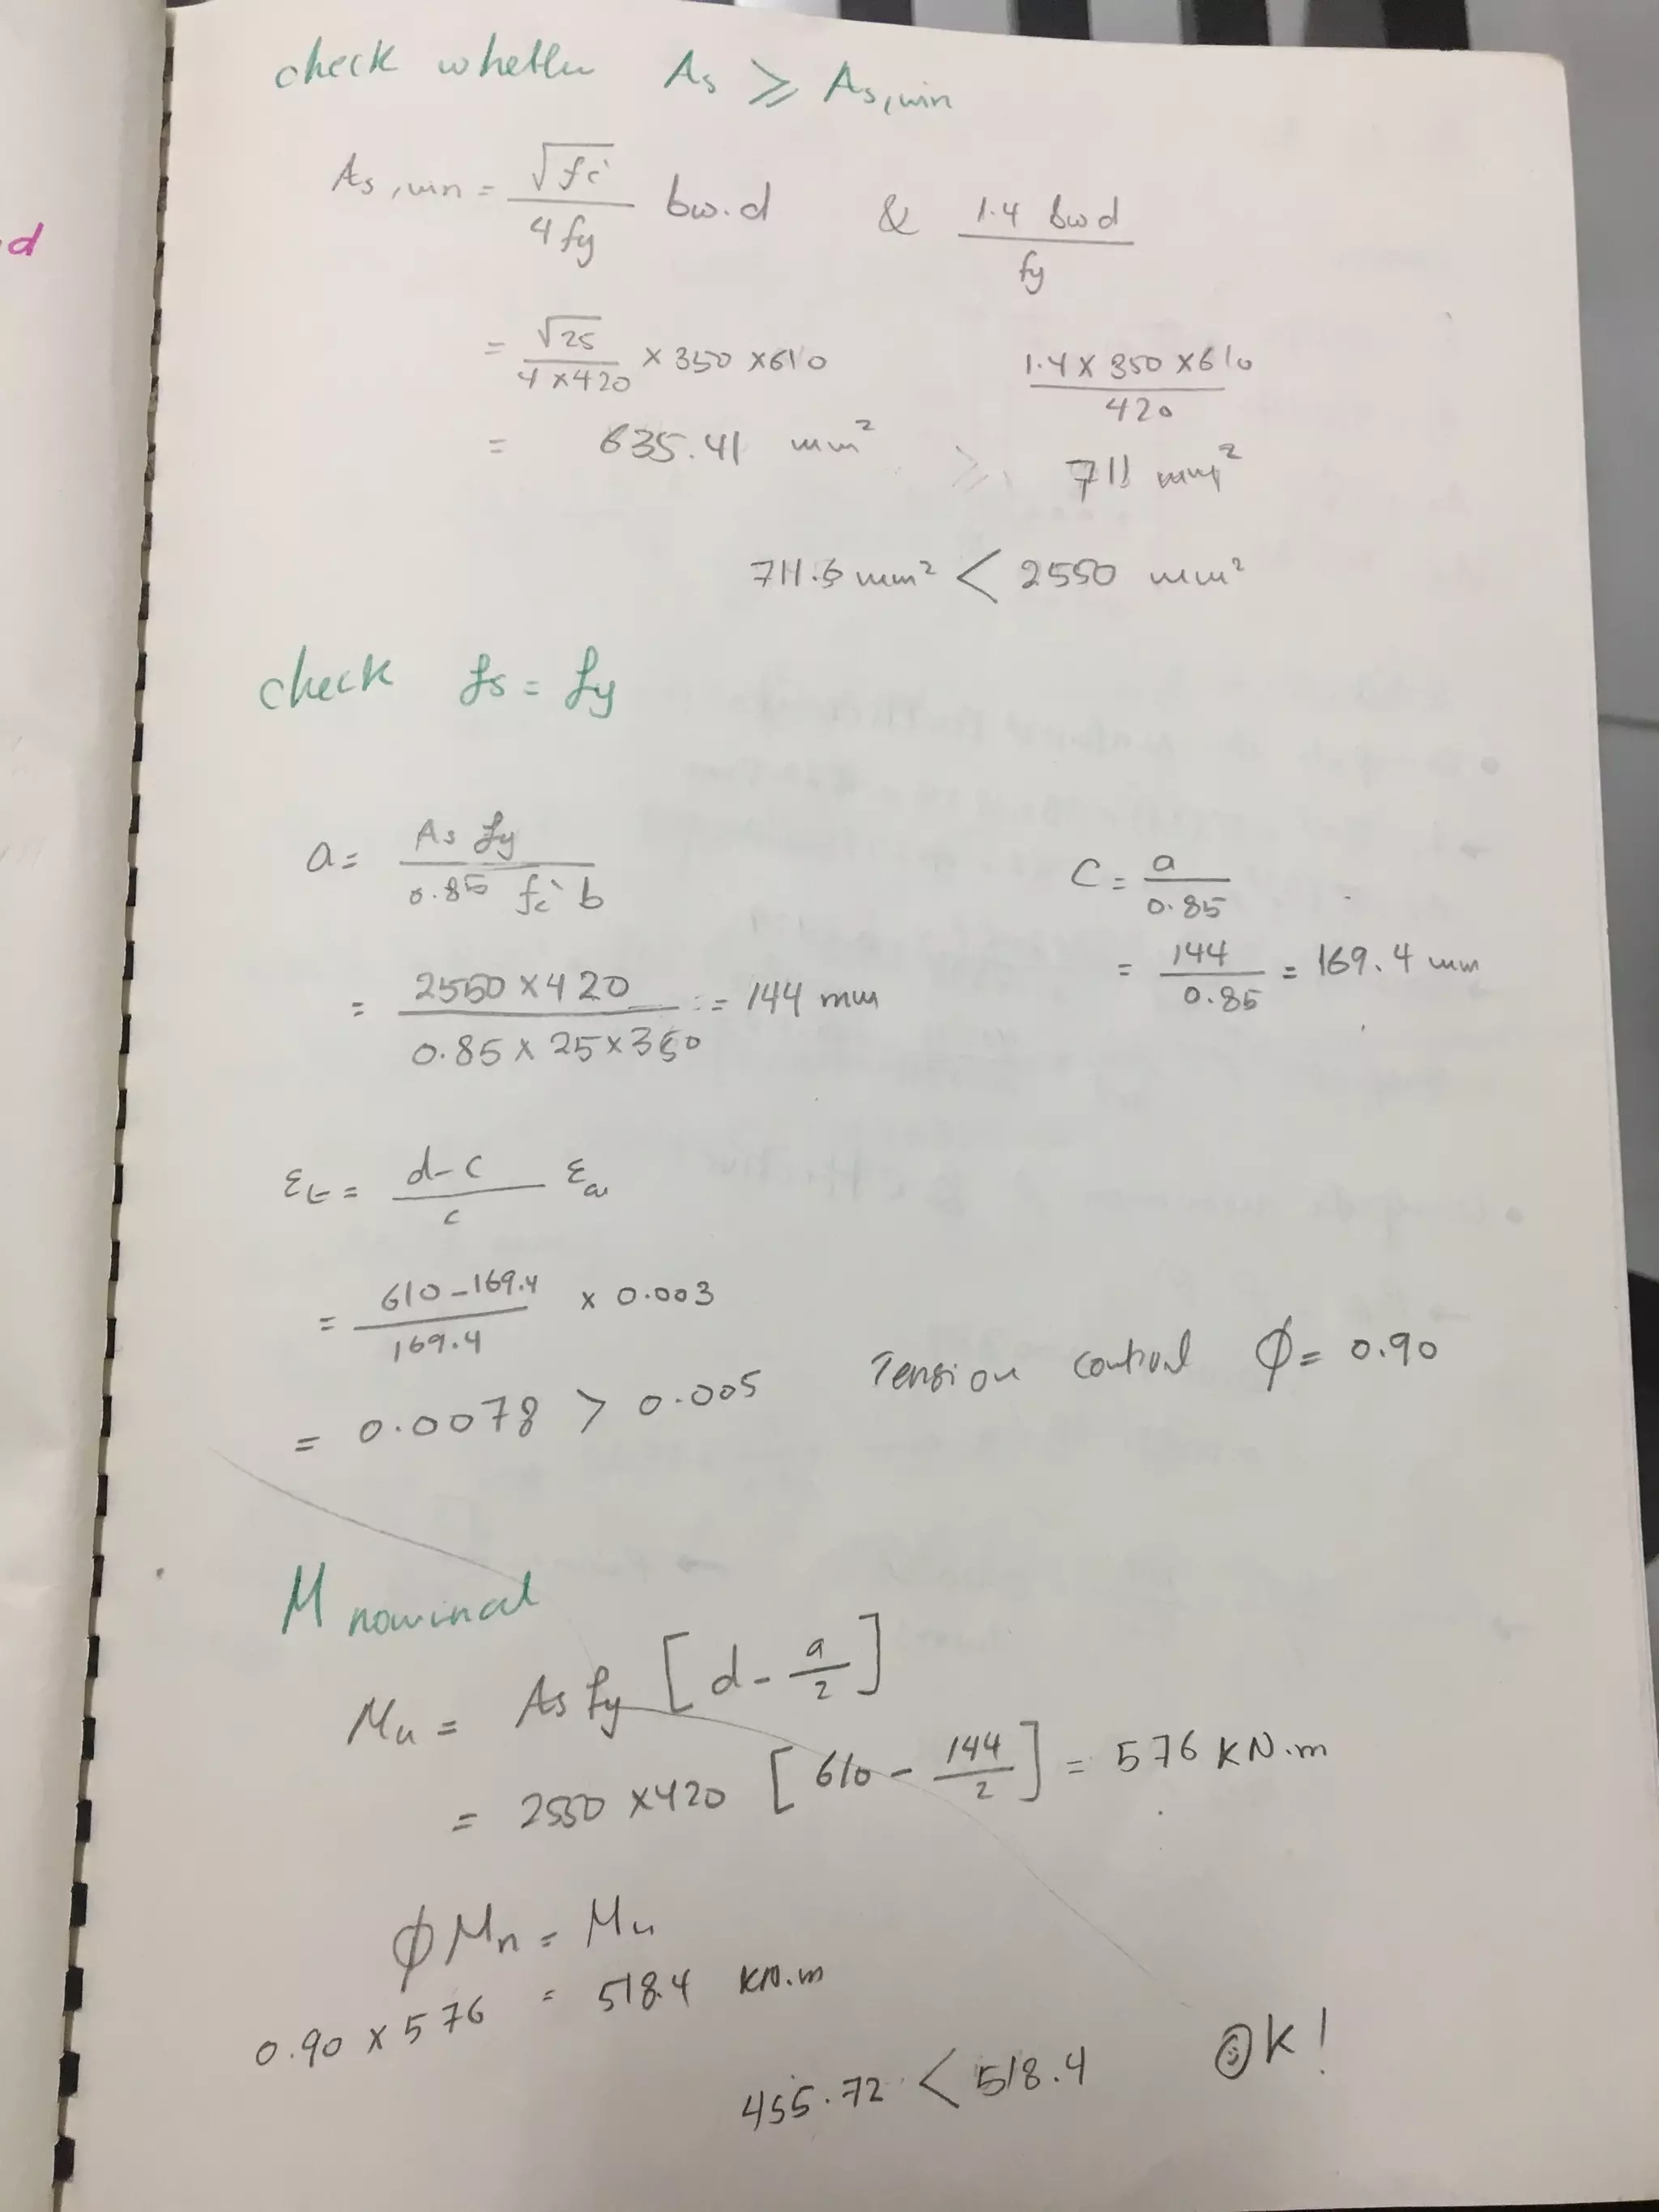 d
check whether As ≥ As,min
As,min = √fc' / 4fy bw.d & 1.4 bwd / fy
= √25 / 4×420 × 350 × 610 1.4 × 350 × 610 / 420
= 635.41 mm² ≥ 711 mm²
711.6 mm² < 2550 mm²
check fs = fy
a = As fy / 0.85 fc' b C = a / 0.85
= 2550 × 420 / 0.85 × 25 × 350 = 144 mm = 144 / 0.85 = 169.4 mm
εt = d-c / c εcu
= 610-169.4 / 169.4 × 0.003
= 0.0078 > 0.005 Tension control ϕ = 0.90
M nominal
Mn = As fy [d - a/2]
= 2550 × 420 [610 - 144/2] = 576 KN.m
ϕ Mn = Mu
0.90 × 576 = 518.4 KN.m
455.72 < 518.4 OK!